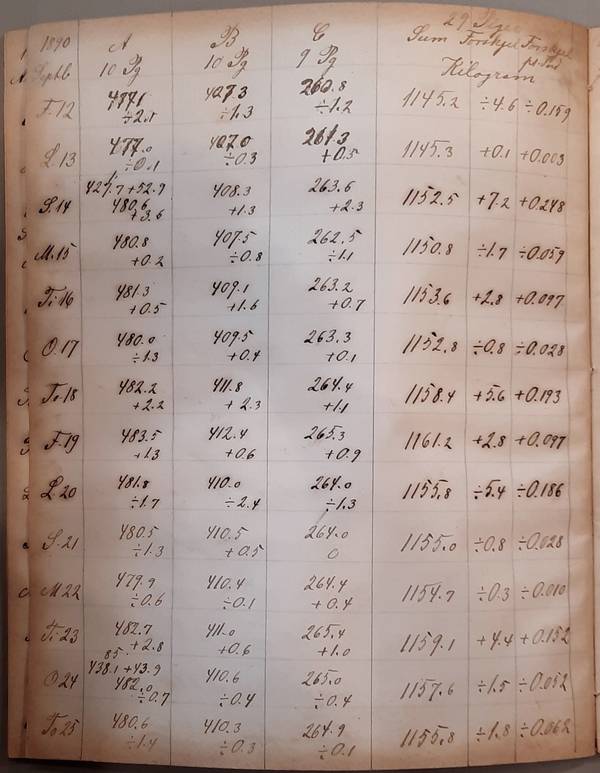 1890 A B C 29 Piger
Septb 10 Pg 10 Pg 9 Pg Sum Forskjel Forskjel
Kilogram pr. Ind
F. 12 477.1 427.3 260.8 1145.2 ÷4.6 ÷0.159
÷2.1 ÷1.3 ÷1.2
L. 13 477.0 407.0 261.3 1145.3 +0.1 +0.003
÷0.1 ÷0.3 +0.5
427.7 +52.9
S. 14 480.6 408.3 263.6 1152.5 +7.2 +0.248
+3.6 +1.3 +2.3
M. 15 480.8 407.5 262.5 1150.8 ÷1.7 ÷0.059
+0.2 ÷0.8 ÷1.1
Ti. 16 481.3 409.1 263.2 1153.6 +2.8 +0.097
+0.5 +1.6 +0.7
O. 17 480.0 409.5 263.3 1152.8 ÷0.8 ÷0.028
÷1.3 +0.4 +0.1
To. 18 482.2 411.8 264.4 1158.4 +5.6 +0.193
+2.2 +2.3 +1.1
F. 19 483.5 412.4 265.3 1161.2 +2.8 +0.097
+1.3 +0.6 +0.9
L. 20 481.8 410.0 264.0 1155.8 ÷5.4 ÷0.186
÷1.7 ÷2.4 ÷1.3
S. 21 480.5 410.5 264.0 1155.0 ÷0.8 ÷0.028
÷1.3 +0.5 0
M. 22 479.9 410.4 264.4 1154.7 ÷0.3 ÷0.010
÷0.6 ÷0.1 +0.4
Ti. 23 482.7 411.0 265.4 1159.1 +4.4 +0.152
+2.8 +0.6 +1.0
85
438.1 +43.9
O. 24 482.0 410.6 265.0 1157.6 ÷1.5 ÷0.052
÷0.7 ÷0.4 ÷0.4
To. 25 480.6 410.3 264.9 1155.8 ÷1.8 ÷0.062
÷1.4 ÷0.3 ÷0.1